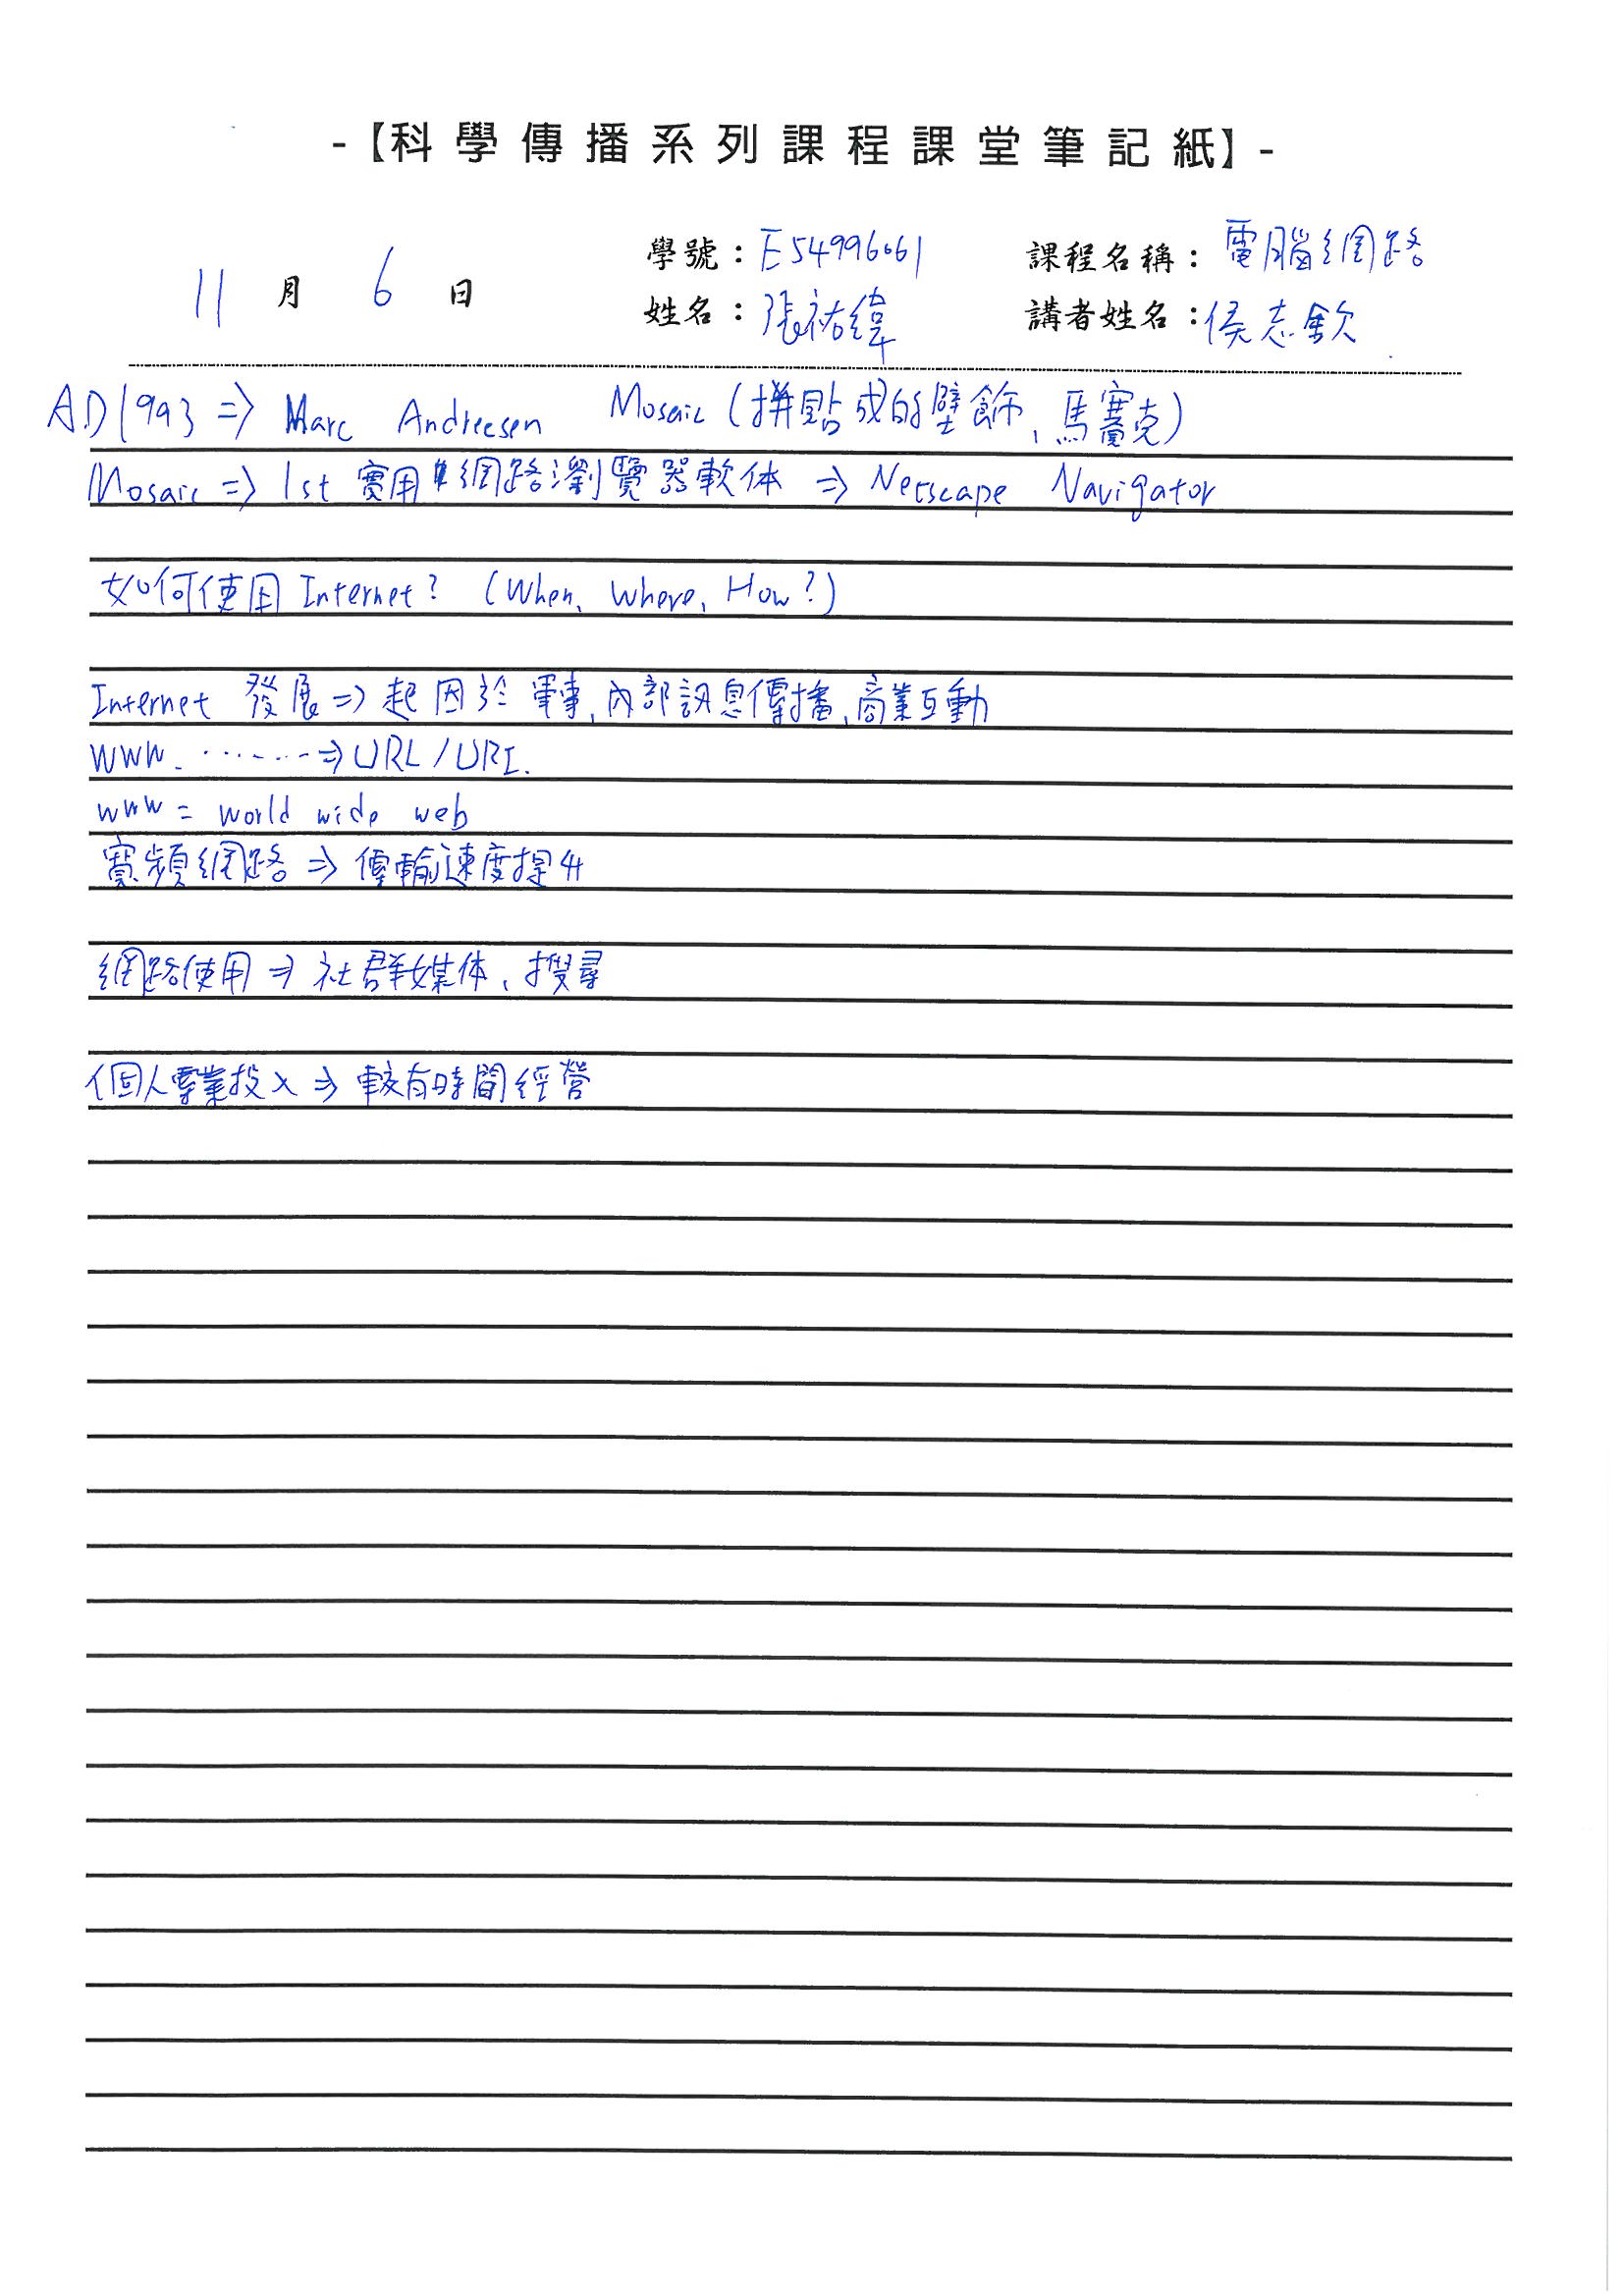 -【科學傳播系列課程課堂筆記紙】-
11 月 6 日
學號：E54996061
課程名稱：電腦網路
姓名：張祐緯
講者姓名：侯志欽
AD1993 ⇒ Marc Andreesen Mosaic (拼點成的壁飾、馬賽克)
Mosaic ⇒ 1st 實用網路瀏覽器軟体 ⇒ Netscape Navigator
如何使用 Internet? (When、Where、How?)
Internet 發展 ⇒ 起因於軍事、內部訊息傳播、商業互動
WWW. ······· ⇒ URL/URI.
www = world wide web
寬頻網路 ⇒ 傳輸速度提升
網路使用 ⇒ 社群媒体、搜尋
個人專業投入 ⇒ 較有時間經營